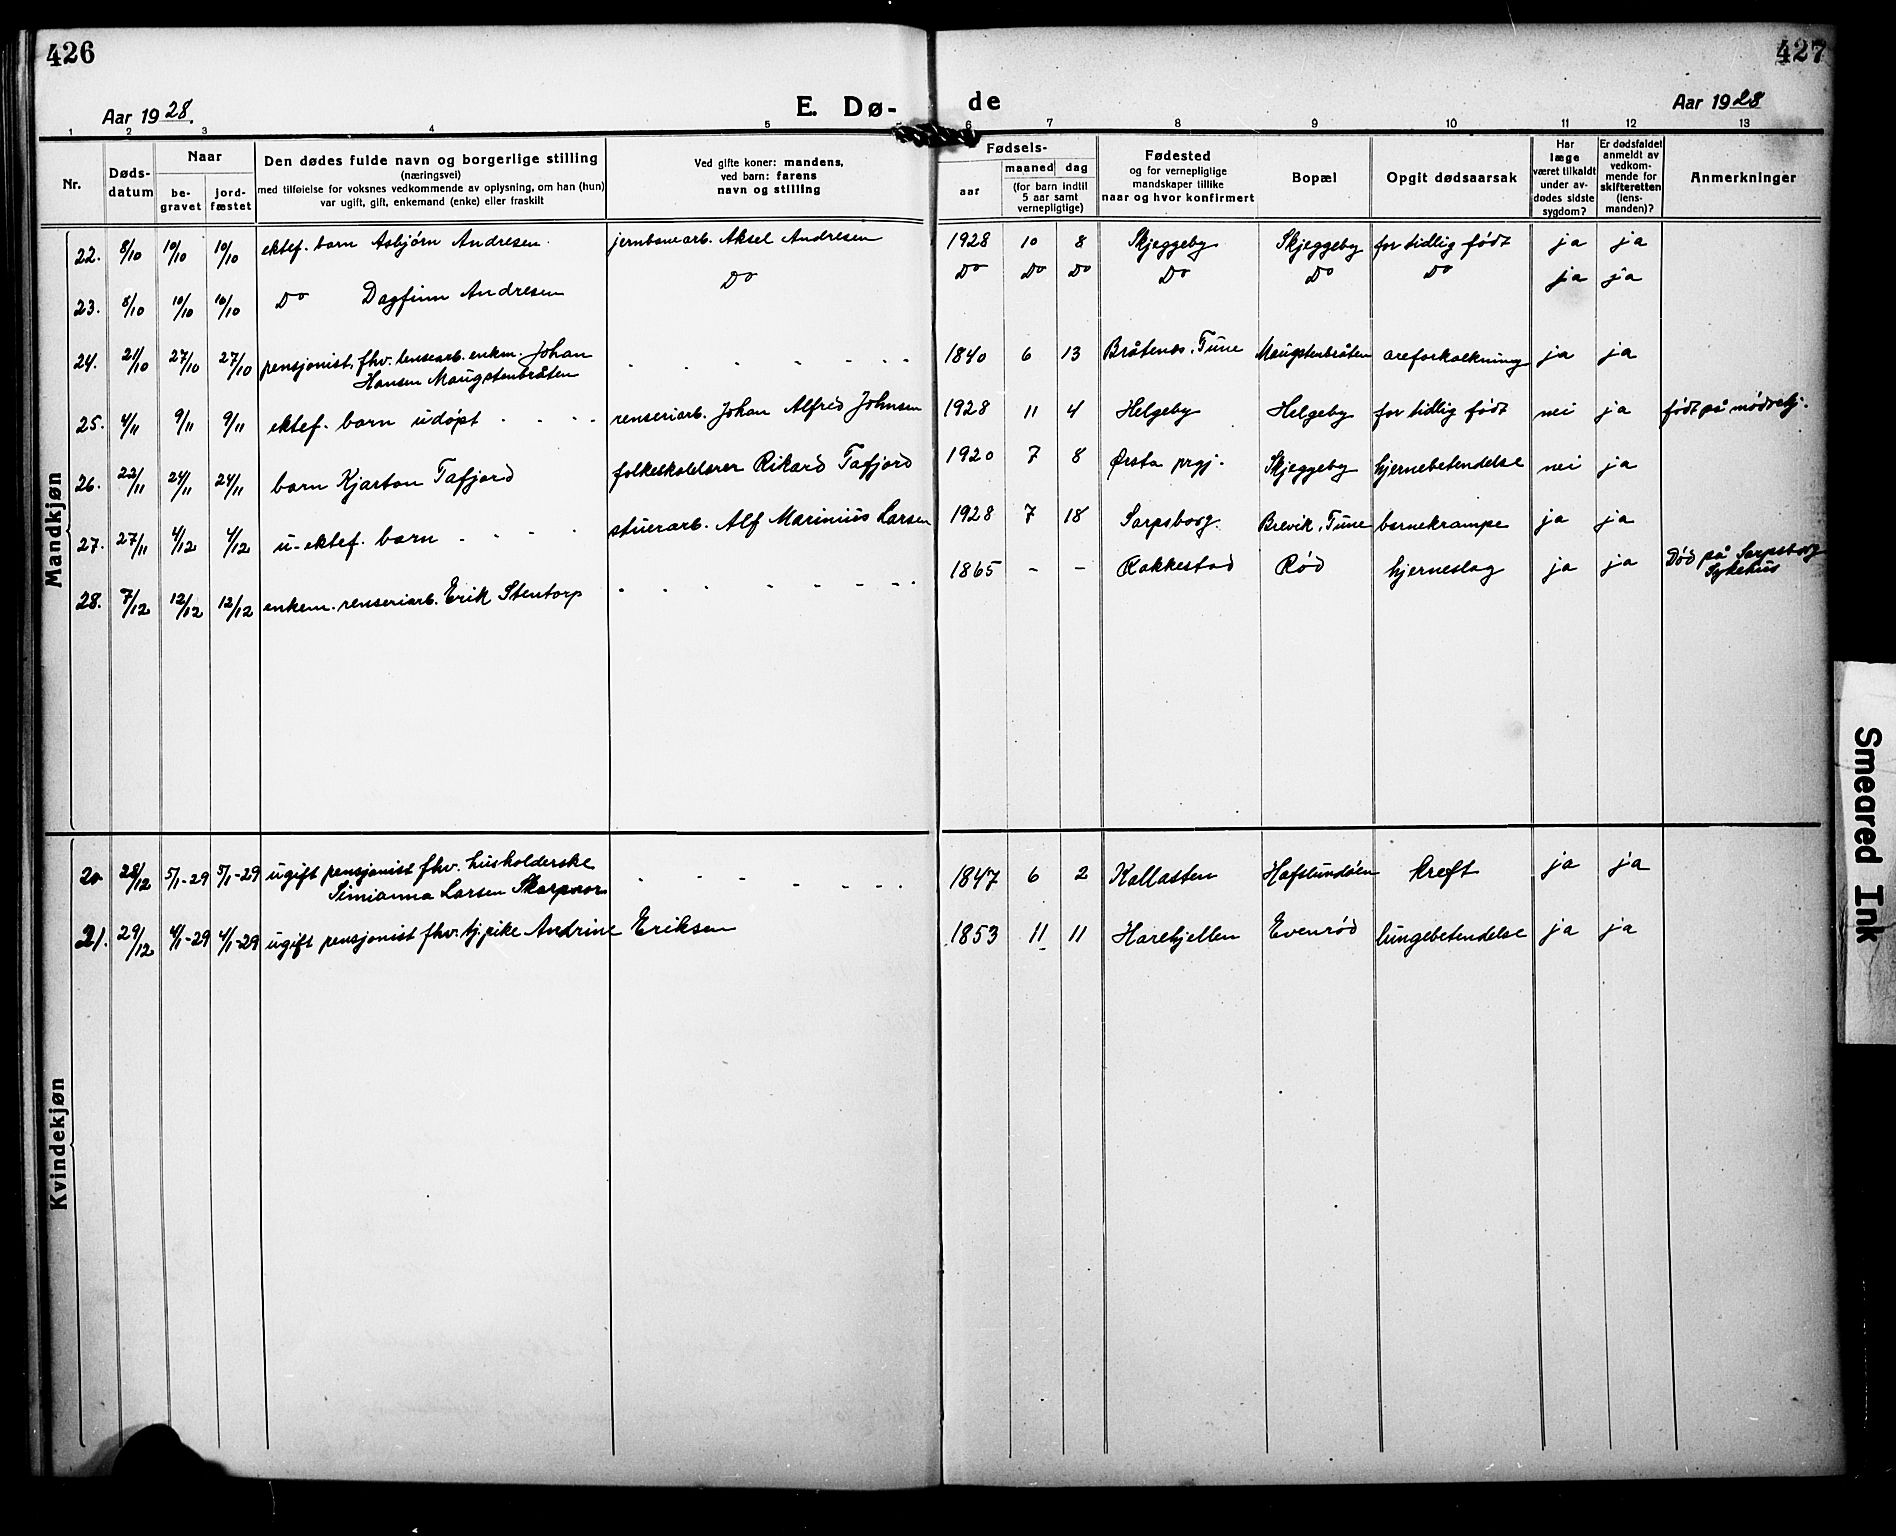 426
427
Aar 1928.
E. Dø-
de
Aar 1928
1 2 3 4 5 6 7 8 9 10 11 12 13
Nr.
Døds-
datum
Naar
be-
gravet
jord-
fæstet
Den dødes fulde navn og borgerlige stilling
(næringsvei)
med tilføielse for voksnes vedkommende av oplysning, om han (hun)
var ugift, gift, enkemand (enke) eller fraskilt
Ved gifte koner: mandens,
ved barn: farens
navn og stilling
Fødsels-
aar
maaned dag
(for barn indtil
5 aar samt
vernepligtige)
Fødested
og for vernepligtige
mandskaper tillike
naar og hvor konfirmert
Bopæl
Opgit dødsaarsak
Har
læge
været tilkaldt
under av-
dødes sidste
sygdom?
Er dødsfaldet
anmeldt av
vedkom-
mende for
skifteretten
(lens-
manden)?
Anmerkninger
Mandkjøn
22. 8/10 10/10 10/10 ektef. barn Asbjørn Andresen. jernbanearb. Aksel Andresen 1928 10 8 Skjeggeby Skjeggeby for tidlig født ja ja
23. 8/10 10/10 10/10 Do Dagfinn Andresen Do Do Do Do Do Do Do ja ja
24. 21/10 27/10 27/10 pensjonist, fhv. lensearb. enkm. Johan
Hansen Maugstenbråten - - - - - - 1840 6 13 Bråtenes, Tune Maugstenbråten areforkalkning ja ja
25. 4/11 9/11 9/11 ektef. barn udøpt - - - renseriarb. Johan Alfred Johnsen 1928 11 4 Helgeby Helgeby for tidlig født nei ja født på mødrehj.
26. 22/11 24/11 24/11 barn Kjartan Tafjord folkeskolelærer Rikard Tafjord 1920 7 8 Ørsta prgj. Skjeggeby hjernebetendelse nei ja
27. 27/11 4/12 4/12 u-ektef. barn - - - - stuerarb. Alf Marinius Larsen 1928 7 18 Sarpsborg. Brevik, Tune barnekrampe ja ja
28. 7/12 12/12 12/12 enkem. renseriarb. Erik Stentorp - - - - - - - 1865 - - Rakkestad Rød hjerneslag ja ja Død på Sarpsborg
Sykehus
Kvindekjøn
20 28/12 5/1-29 5/1-29 ugift pensjonist fhv. husholderske
Simianna Larsen Skarpnor - - - - - - - 1847 6 2 Kallasten Hafslundøien kreft ja ja
21. 29/12 4/1-29 4/1-29 ugift pensjonist fhv. tj.pike Andrine Eriksen 1853 11 11 Harehjellen Evenrød lungebetendelse ja ja
Smeared Ink